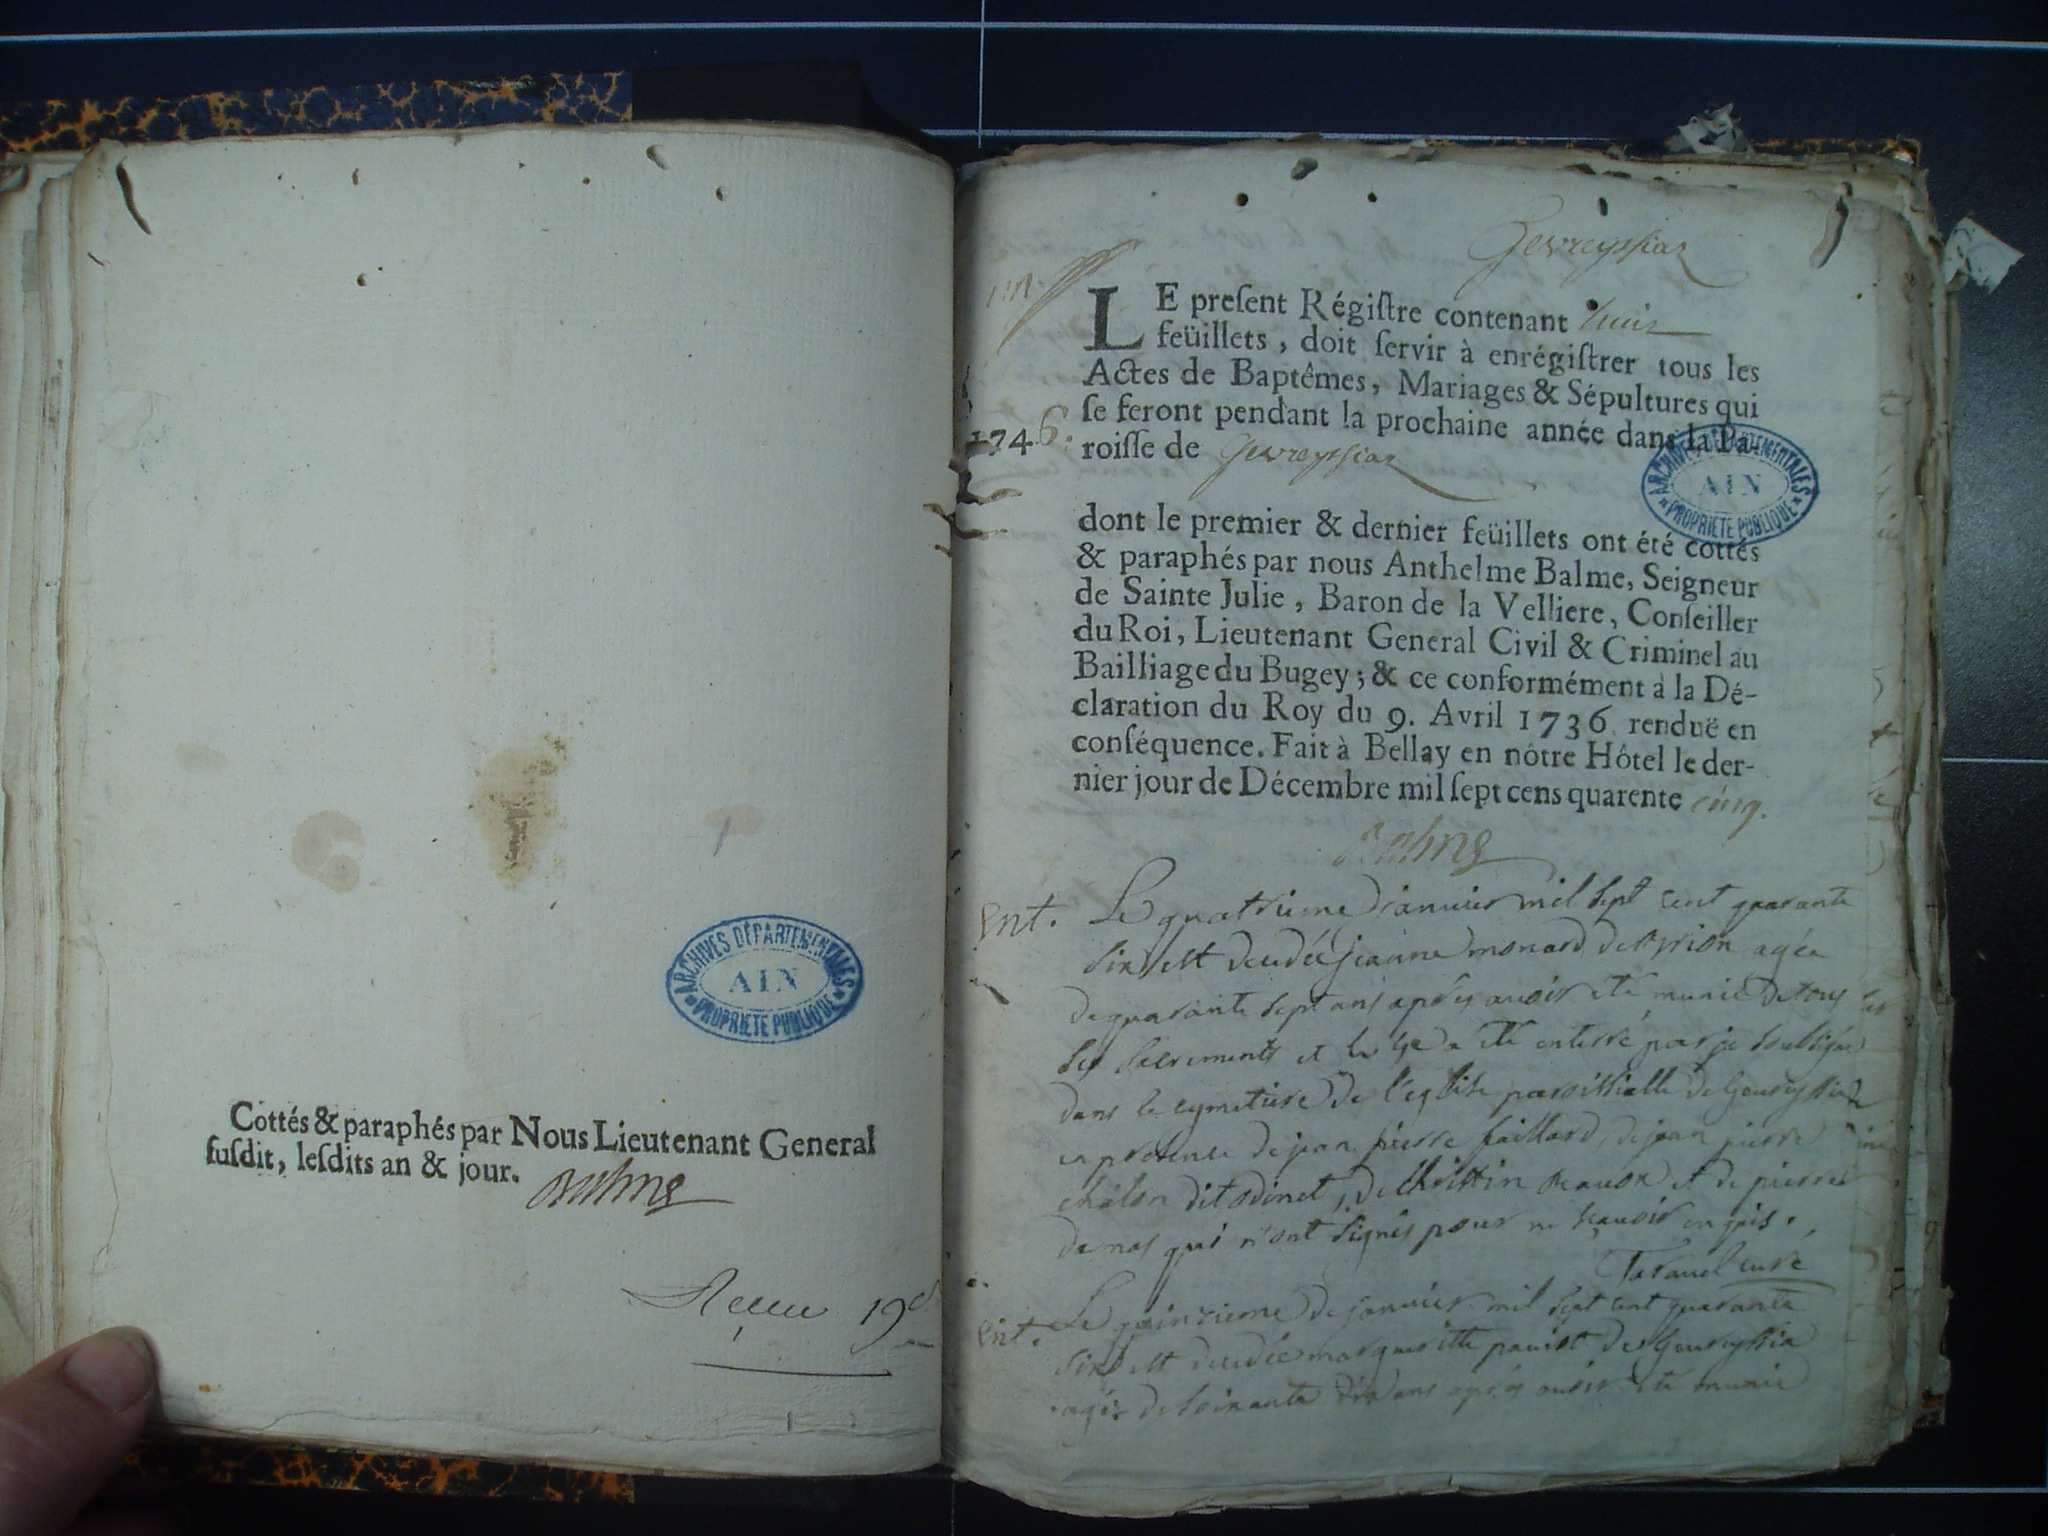 ARCHIVES DÉPARTEMENTALES
AIN
PROPRIÉTÉ PUBLIQUE
Cottés & paraphés par Nous Lieutenant General
ſuſdit, leſdits an & jour. Balme
Receu 19
Gevreyssiaz
LE preſent Régiſtre contenant huit
feüillets, doit ſervir à enrégiſtrer tous les
Actes de Baptêmes, Mariages & Sépultures qui
ſe feront pendant la prochaine année dans la Pa-
1746. roiſſe de Gevreyssiaz
ARCHIVES DÉPARTEMENTALES
AIN
PROPRIÉTÉ PUBLIQUE
dont le premier & dernier feüillets ont été cottés
& paraphés par nous Anthelme Balme, Seigneur
de Sainte Julie, Baron de la Velliere, Conſeiller
du Roi, Lieutenant General Civil & Criminel au
Bailliage du Bugey; & ce conformément à la Dé-
claration du Roy du 9. Avril 1736 renduë en
conſéquence. Fait à Bellay en nôtre Hôtel le der-
nier jour de Décembre mil ſept cens quarente cinq.
Balme
Ent. Le quatrieme janvier mil sept cent quarante
six est decedée jeanne monard age��e
de quarante sept ans après avoir eté munie de tous
les sacrements et a eté enterré par je soussigné
dans le cymetiere de l'eglise paroissialle de
en presence de jean pierre faillard, de jean pierre
chalon dit odinet, de et de pierre
qui n'ont signés pour ne scavoir
curé
Ent. Le quinzieme de janvier mil sept cent quarante
six est decedée margueritte de
agée de soixante dix ans après avoir eté munie